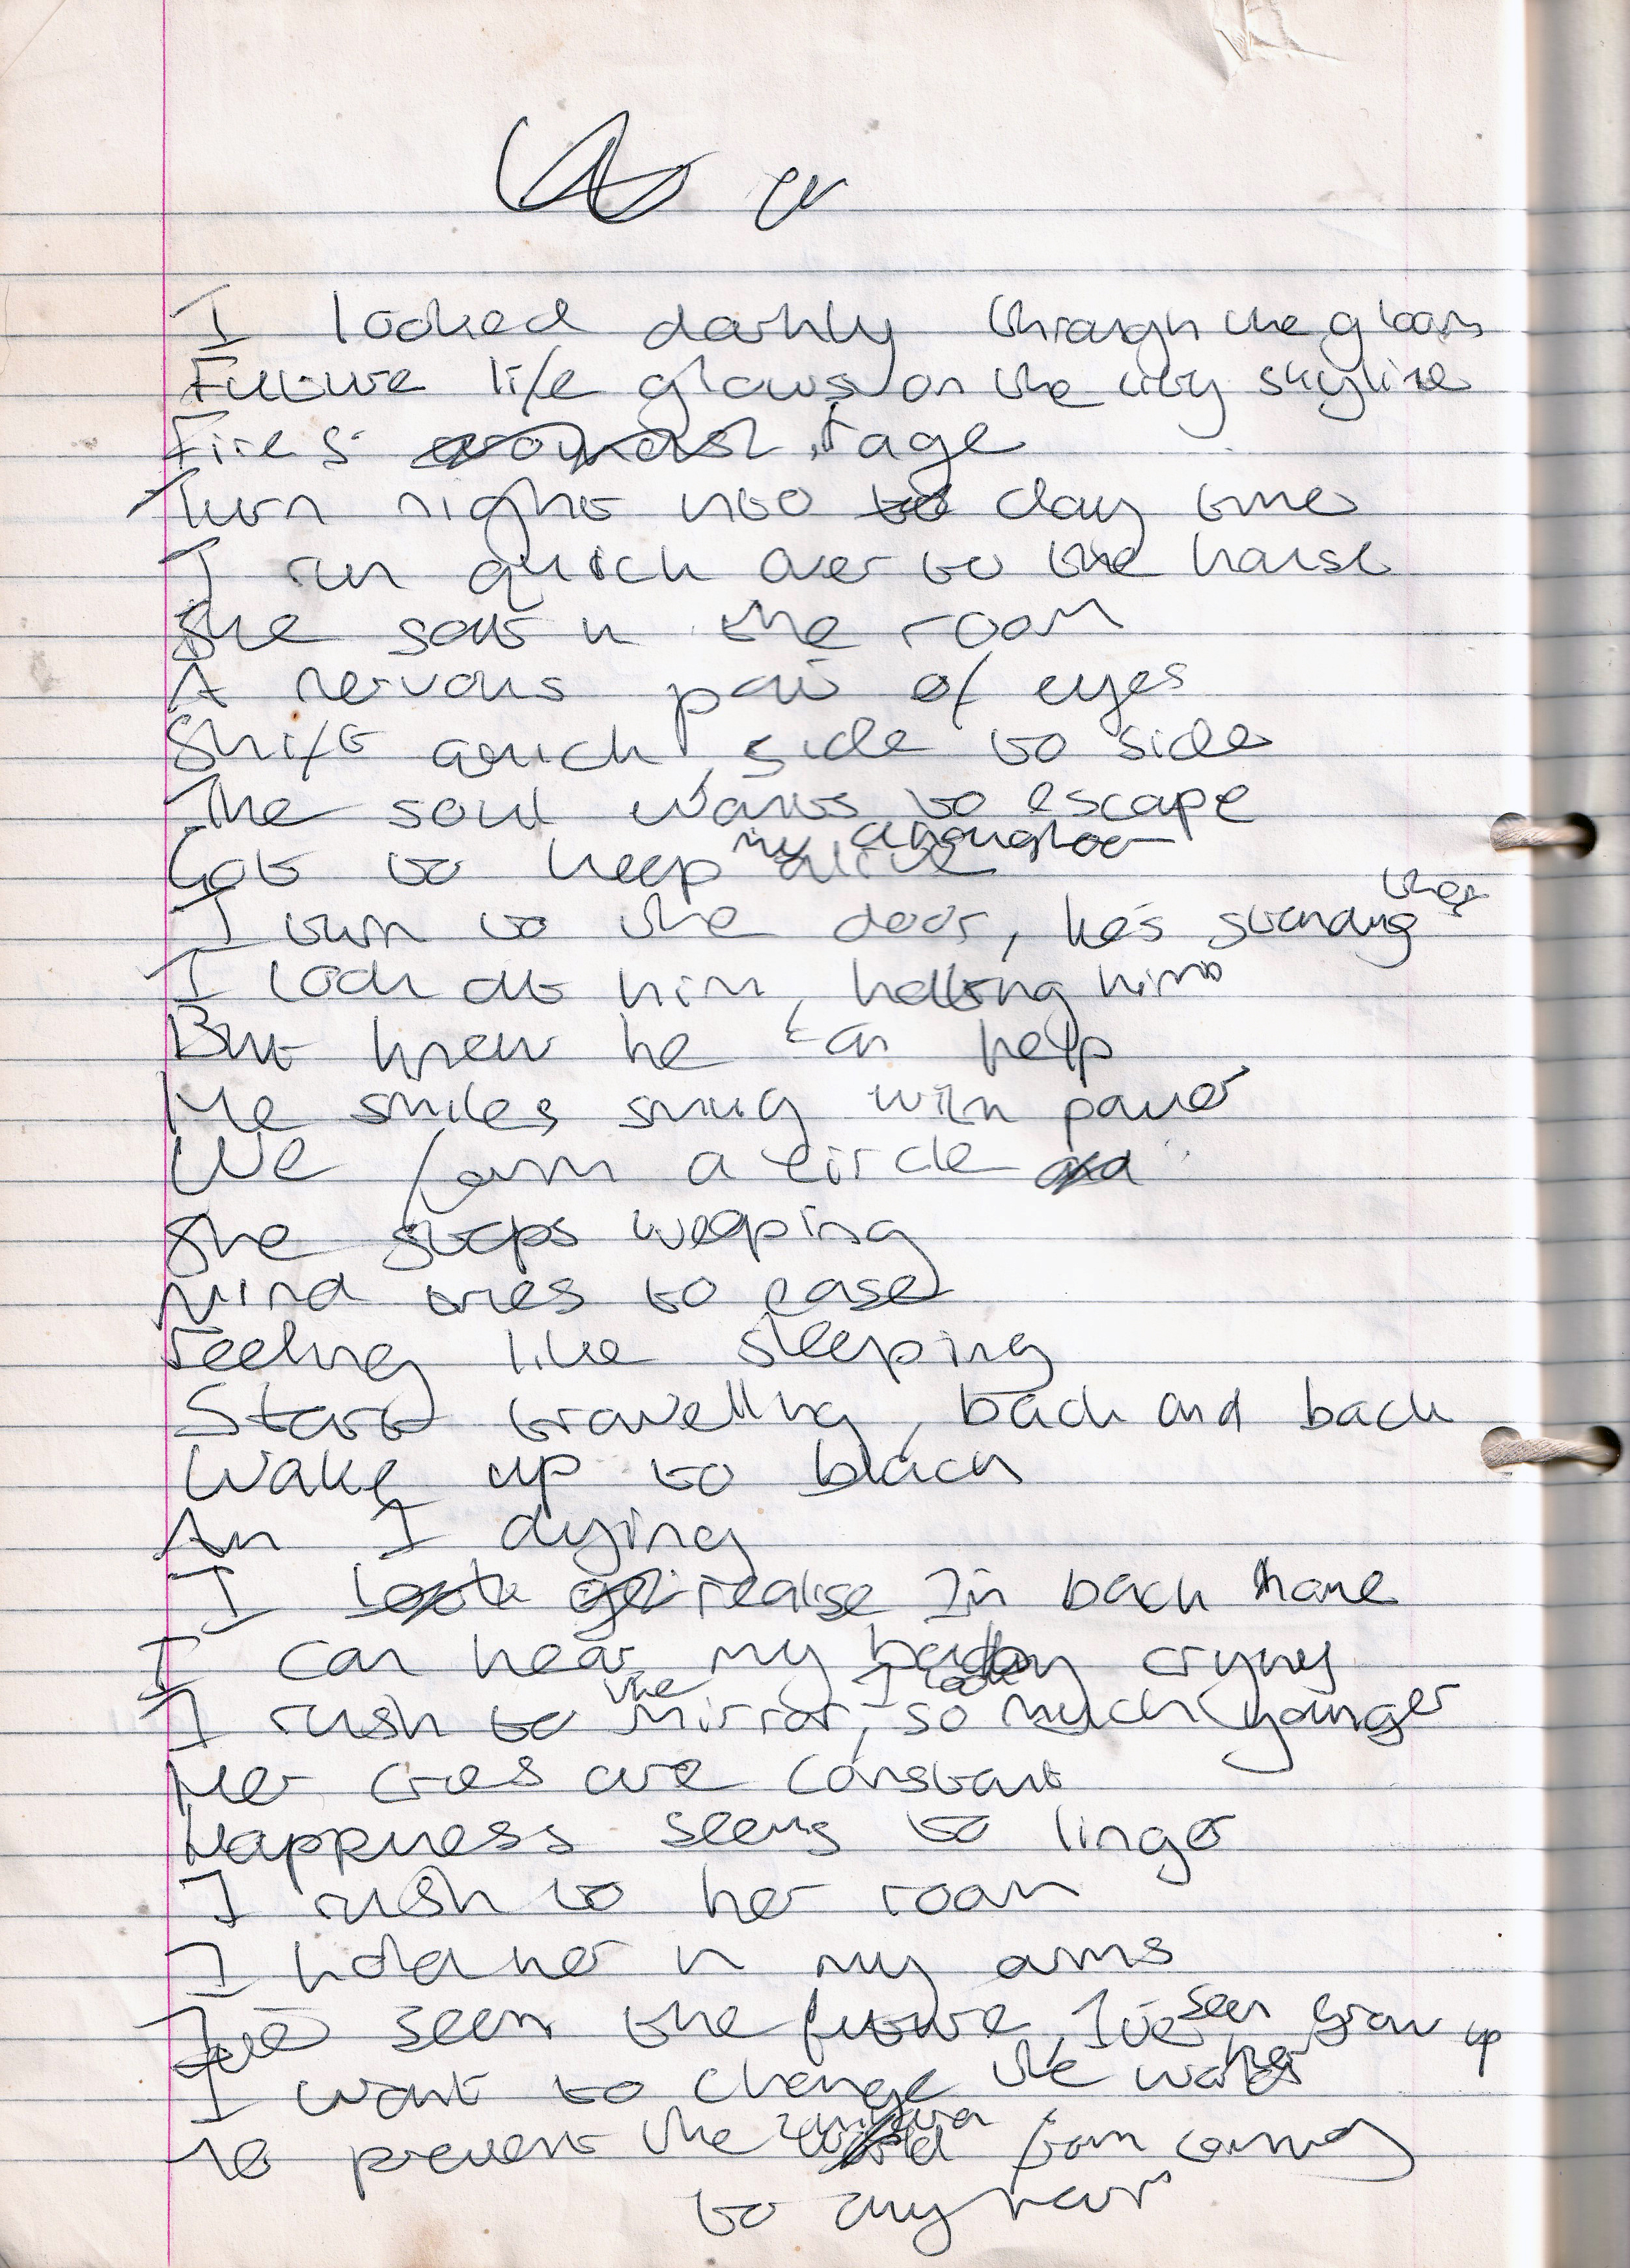 I looked darkly through the gloom
Future life glows on the city skyline
Fires around rage
Turn night into to day time
I run quick over to the house
She sat in the room
A nervous pair of eyes
Shift quick, side to side
The soul wants to escape
Got to keep my daughter alive
I turn to the door, he's standing there
I look at him, hating him
But knew he can help
He smiles smug with power
We form a circle and
She stops weeping
Mind tries to ease
Feeling like sleeping
Start travelling, back and back
Wake up to black
Am I dying
I look realise I'm back home
I can hear my baby crying
I rush to the mirror, I look so much younger
Her cries are constant
Happiness seems to linger
I rush to her room
I hold her in my arms
I've seen the future, I've seen her grow up
I want to change the world
To prevent the from coming
to